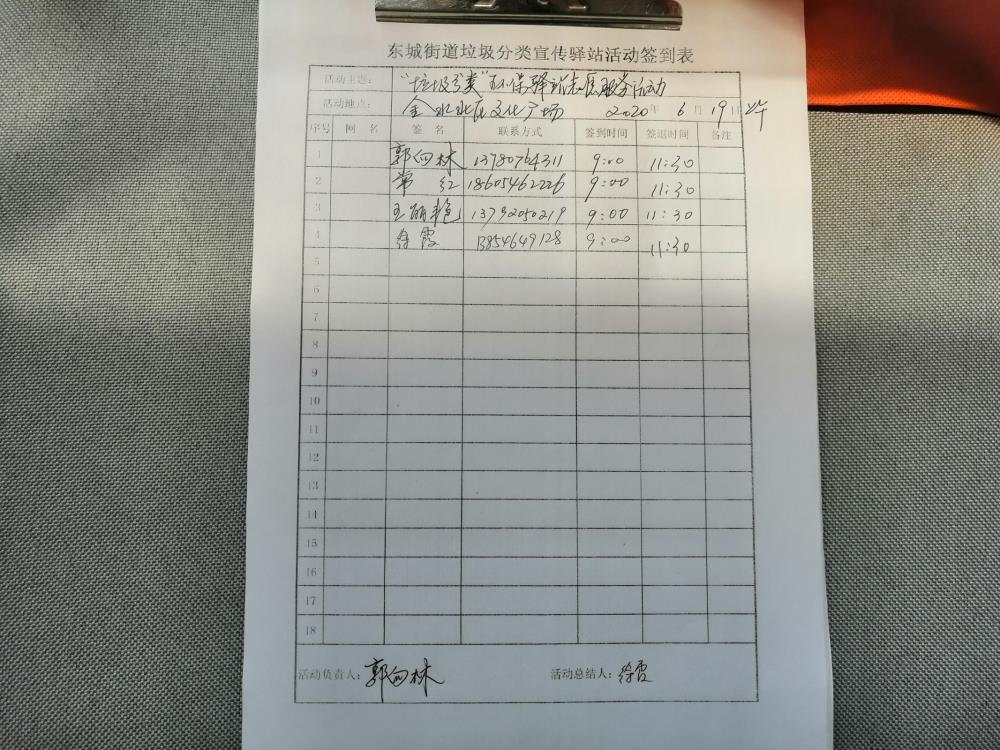 东城街道垃圾分类宣传驿站活动签到表
活动主题： "垃圾分类"环保驿站志愿服务活动
活动地点： 金水北区文化广场 2020年 6月 19日 上午
序号 网 名 签 名 联系方式 签到时间 签退时间 备注
1 郭向林 13780764311 9:00 11:30
2 常 红 18605462226 9:00 11:30
3 王丽艳 13792050219 9:00 11:30
4 徐霞 13854649128 9:00 11:30
5
6
7
8
9
10
11
12
13
14
15
16
17
18
活动负责人：郭向林 活动总结人：徐霞